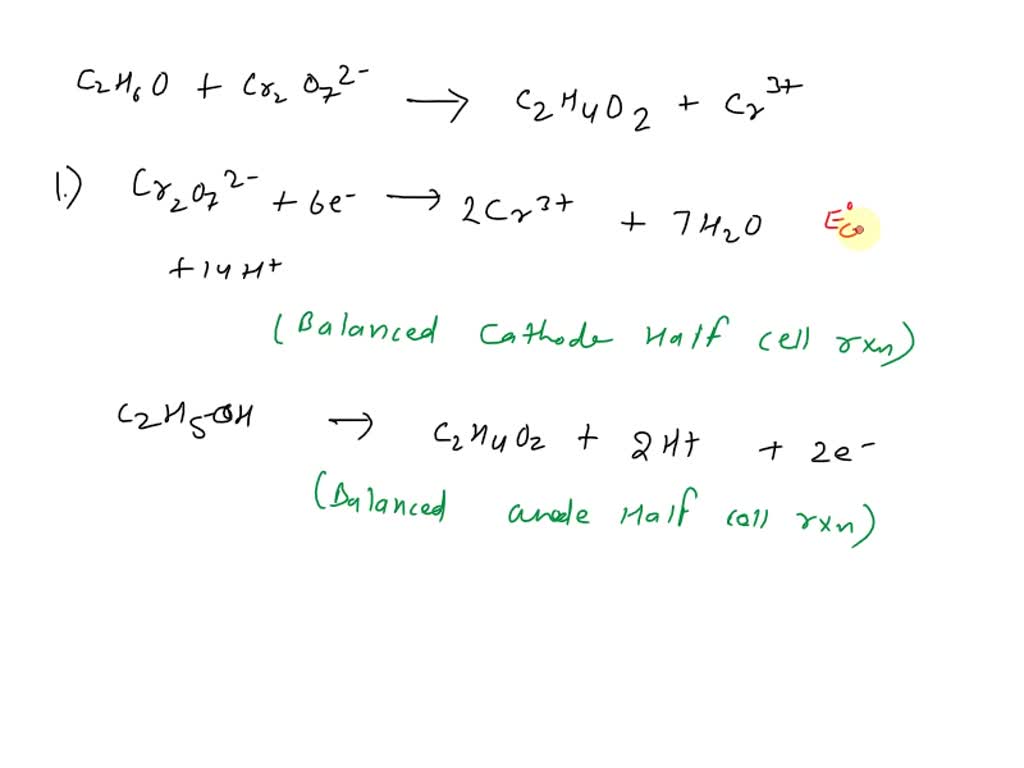 C2H6O + Cr2O7^2- → C2H4O2 + Cr^3+
1.) Cr2O7^2- + 6e^- → 2Cr^3+ + 7H2O
+ 14H^+
(Balanced Cathode Half cell rxn)
C2H5-OH → C2H4O2 + 2H+ + 2e^-
(Balanced anode Half cell rxn)